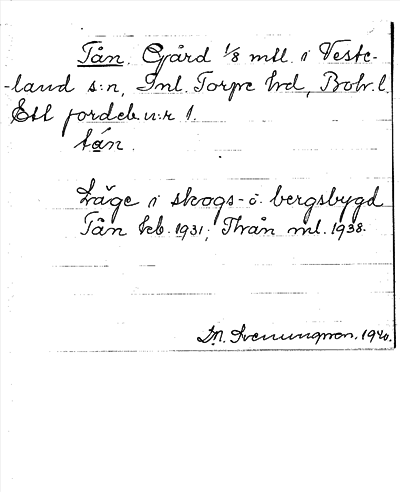 Tån. Gård 1/8 mtl. i Veste-
-land s:n, Inl. Torpe hd, Boh. l.
Ett fordeb. n:r 1.
tån.
Läge i skogs- o. bergsbygd
Tån kb. 1931; Thrån ml. 1938.
D.N. Svenungsson. 1940.